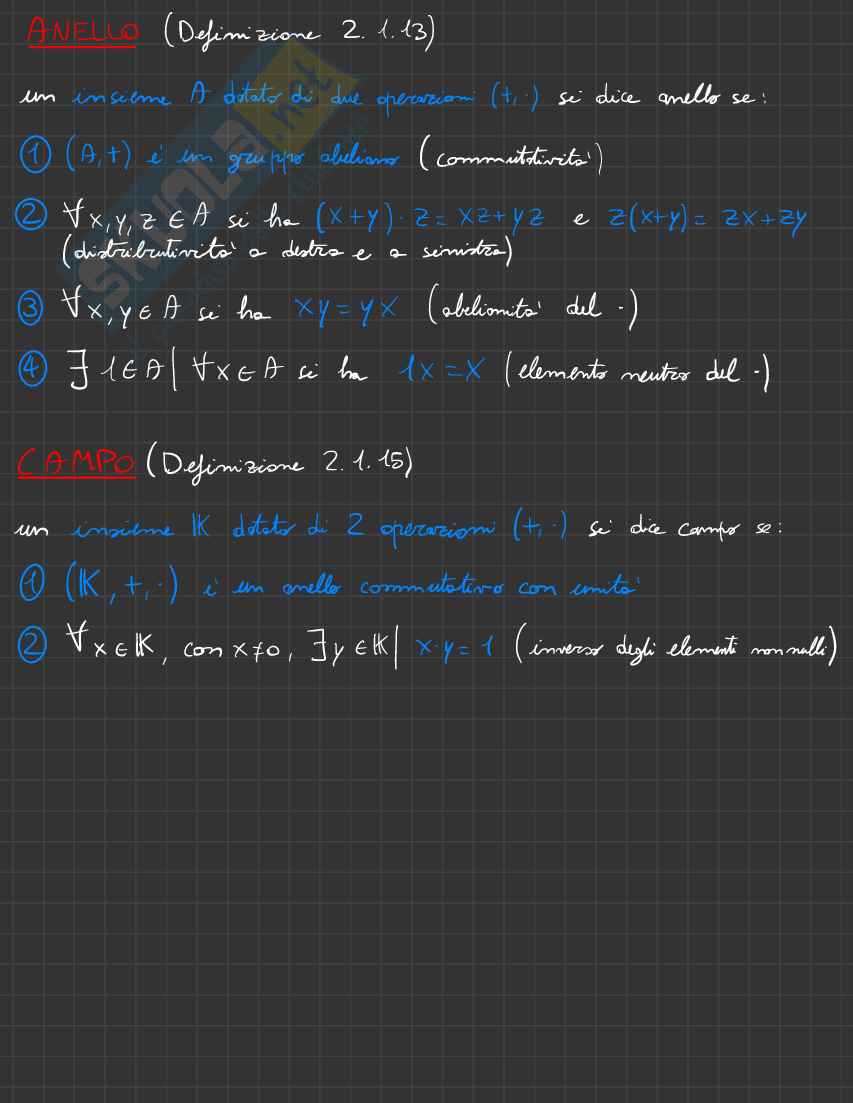 ANELLO (Definizione 2.1.13)
un insieme A dotato di due operazioni (+,·) si dice anello se:
① (A,+) è un gruppo abeliano (commutatività)
② ∀x,y,z ∈ A si ha (x+y)·z = xz+yz e z(x+y) = zx+zy
(distributività a destra e a sinistra)
③ ∀x,y ∈ A si ha xy = yx (abelianità del ·)
④ ∃ 1 ∈ A | ∀x ∈ A si ha 1x = x (elemento neutro del ·)
CAMPO (Definizione 2.1.15)
un insieme 𝕂 dotato di 2 operazioni (+,·) si dice campo se:
① (𝕂,+,·) è un anello commutativo con unità
② ∀x ∈ 𝕂, con x≠0, ∃y ∈ 𝕂 | x·y = 1 (inverso degli elementi non nulli)
SKUOLA.net